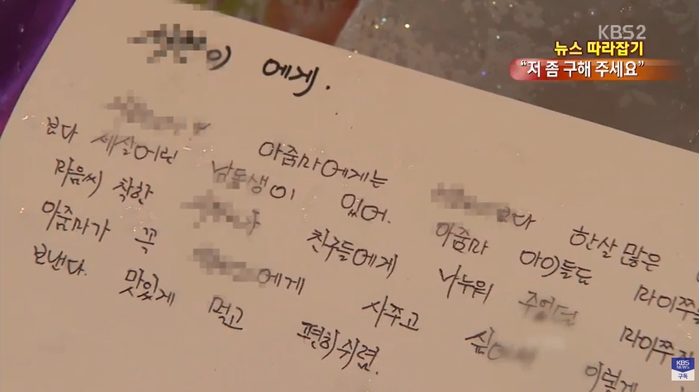 KBS2
뉴스 따라잡기
“저 좀 구해 주세요”
이 에게.
아줌마에게는
보다 세살어린 남동생이 있어. 보다 한살 많은
마음씨 착한 친구들에게 아줌마 아이들도 마이쭈를
아줌마가 꼭 에게 사주고 나누워 주었던 마이쭈
보낸다. 맛있게 먹고 편히쉬렴. 이렇게
KBS NEWS
구독